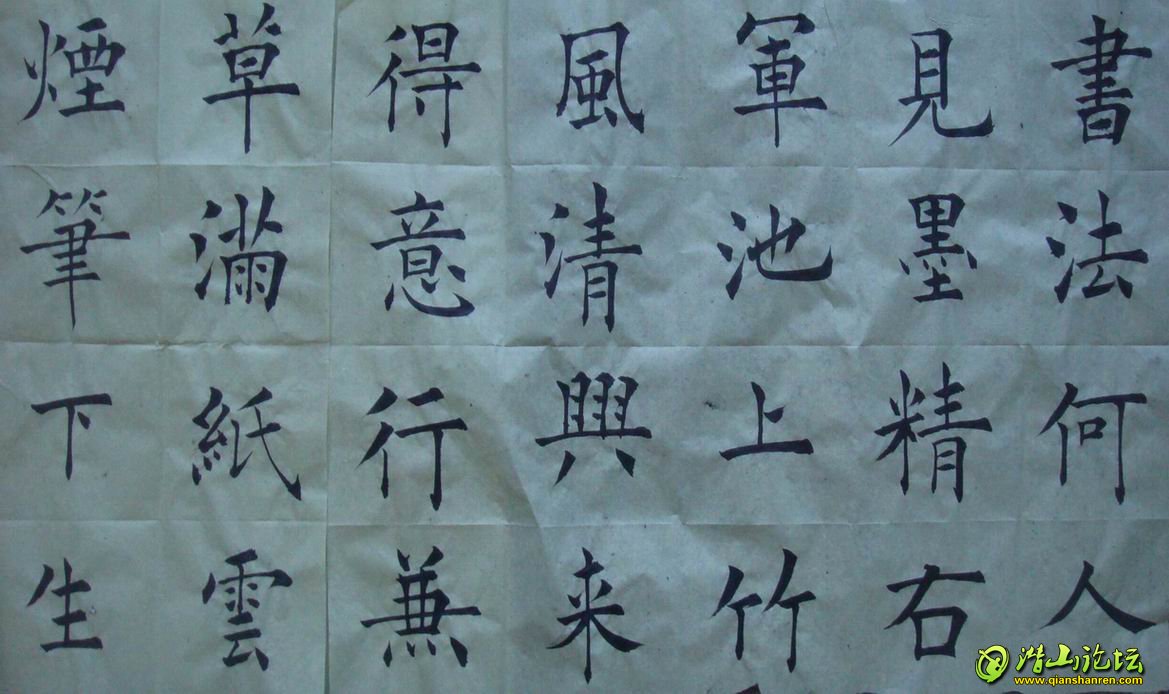 書法何人
見墨精右
軍池上竹
風清興来
得意行兼
草滿紙雲
煙筆下生
潜山论坛
www.qianshanren.com